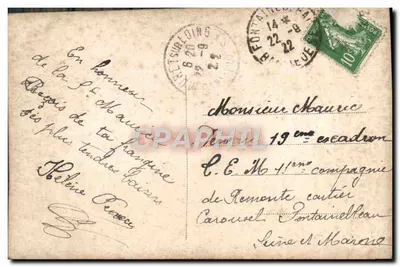 En honneur
de la St Maurice
Reçois de ta frangine
ses plus tendres baisers
Hélène
MORET SUR LOING
8 20
20 -9
22
FONTAINEBLEAU
14
22 -9
22
10
CPARAMA
Monsieur Maurice
19eme escadron
C.E.M 11eme compagnie
de Remonte cartier
Carousel Fontainebleau
Seine et Marne